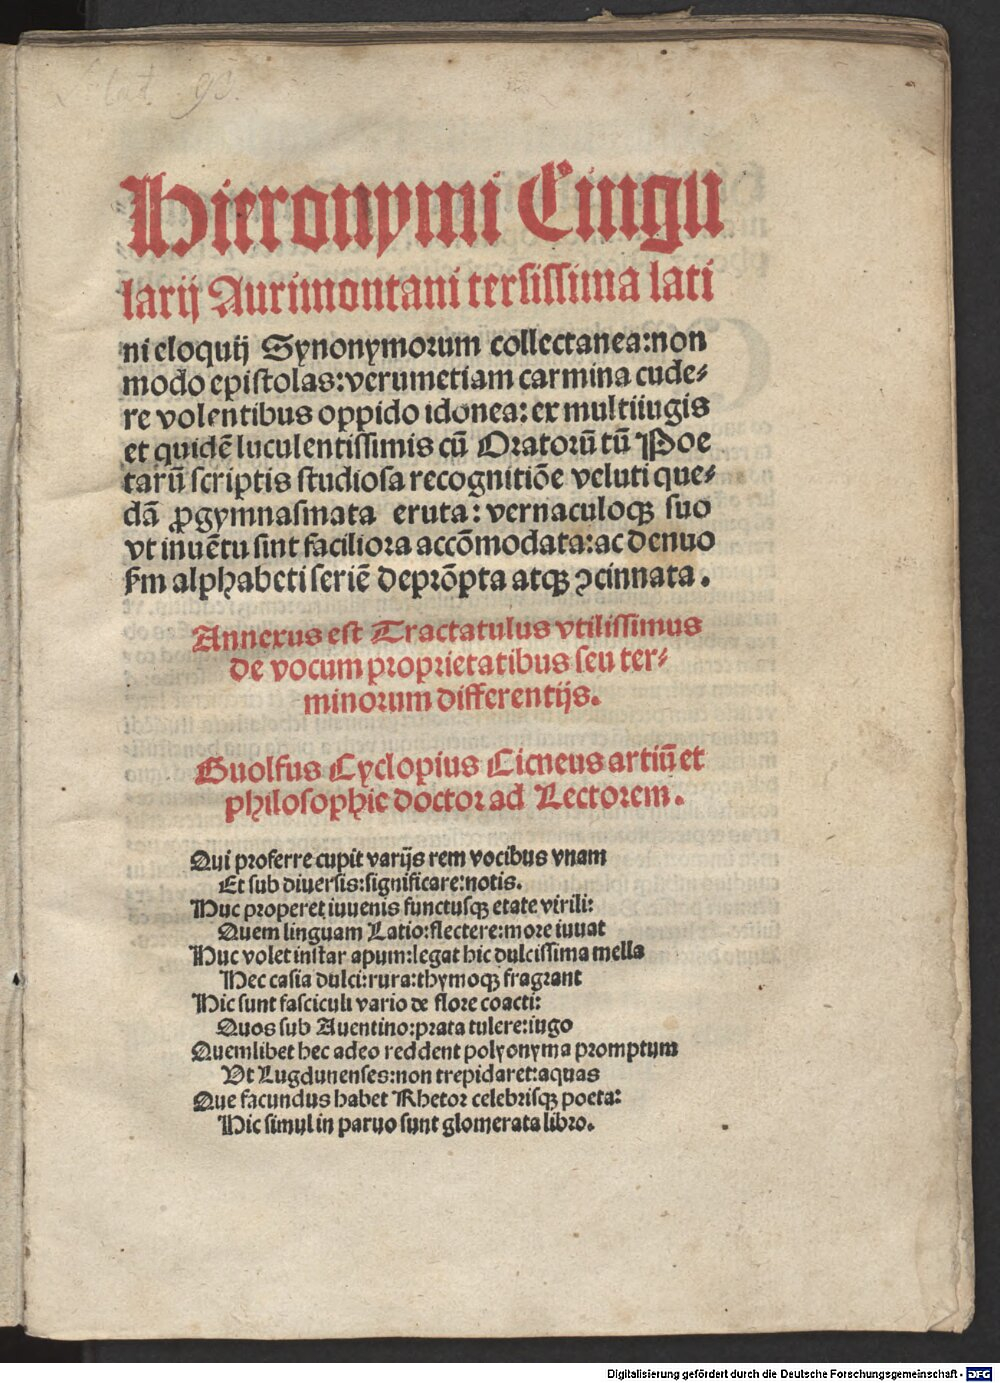 Hieronymi Cingu
larij Aurimontani tersissima lati
ni eloquij Synonymorum collectanea: non
modo epistolas: verumetiam carmina cude⸗
re volentibus oppido idonea: ex multiiugis
et quidē luculentissimis cū Oratorū tū Poe
tarū scriptis studiosa recognitiōe veluti que⸗
dā ꝓgymnasmata eruta: vernaculoqꝫ suo
vt inuētu sint faciliora accōmodata: ac denuo
ẜm alphabeti seriē deprōpta atqꝫ ꝯcinnata.
Annexus est Tractatulus vtilissimus
de vocum proprietatibus seu ter⸗
minorum differentijs.
Guolfus Cyclopius Cicneus artiū et
philosophie doctor ad Lectorem.
Qui proferre cupit varijs rem vocibus vnam
Et sub diuersis: significare: notis.
Huc properet iuuenis functusqꝫ etate virili:
Quem linguam Latio: flectere: more iuuat
Huc volet instar apum: legat hic dulcissima mella
Hec casia dulci: rura: thymoqꝫ fragrant
Hic sunt fasciculi vario de flore coacti:
Quos sub Auentino: prata tulere: iugo
Quemlibet hec adeo reddent polyonyma promptum
Vt Lugdunenses: non trepidaret: aquas
Que facundus habet Rhetor celebrisqꝫ poeta:
Hic simul in paruo sunt glomerata libro.
Digitalisierung gefördert durch die Deutsche Forschungsgemeinschaft - DFG